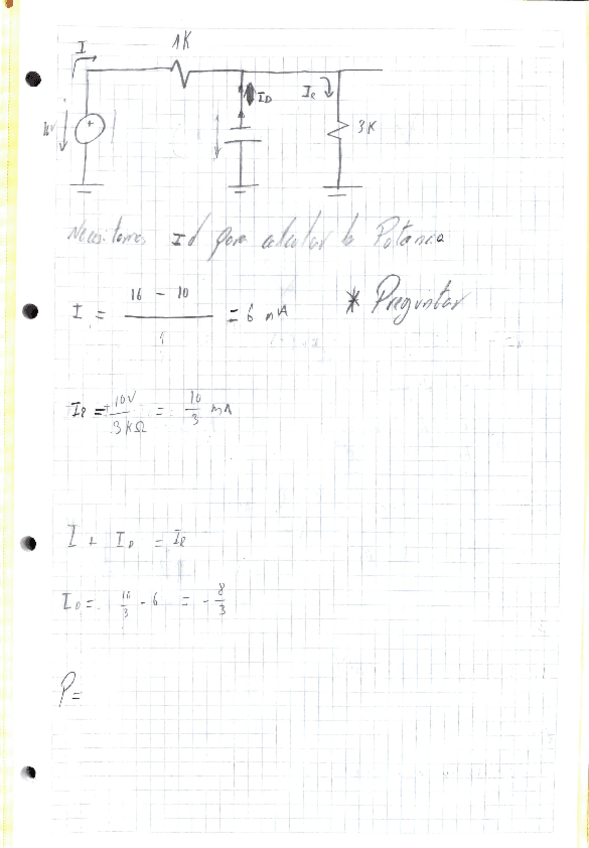 1K
I
ID
IR
3K
Necesitamos Id para calcular la Potencia
I = 16 - 10 / 1 = 6 mA * Preguntar
IR = 10V / 3KΩ = 10/3 mA
I + ID = IR
ID = 10/3 - 6 = - 8/3
P=